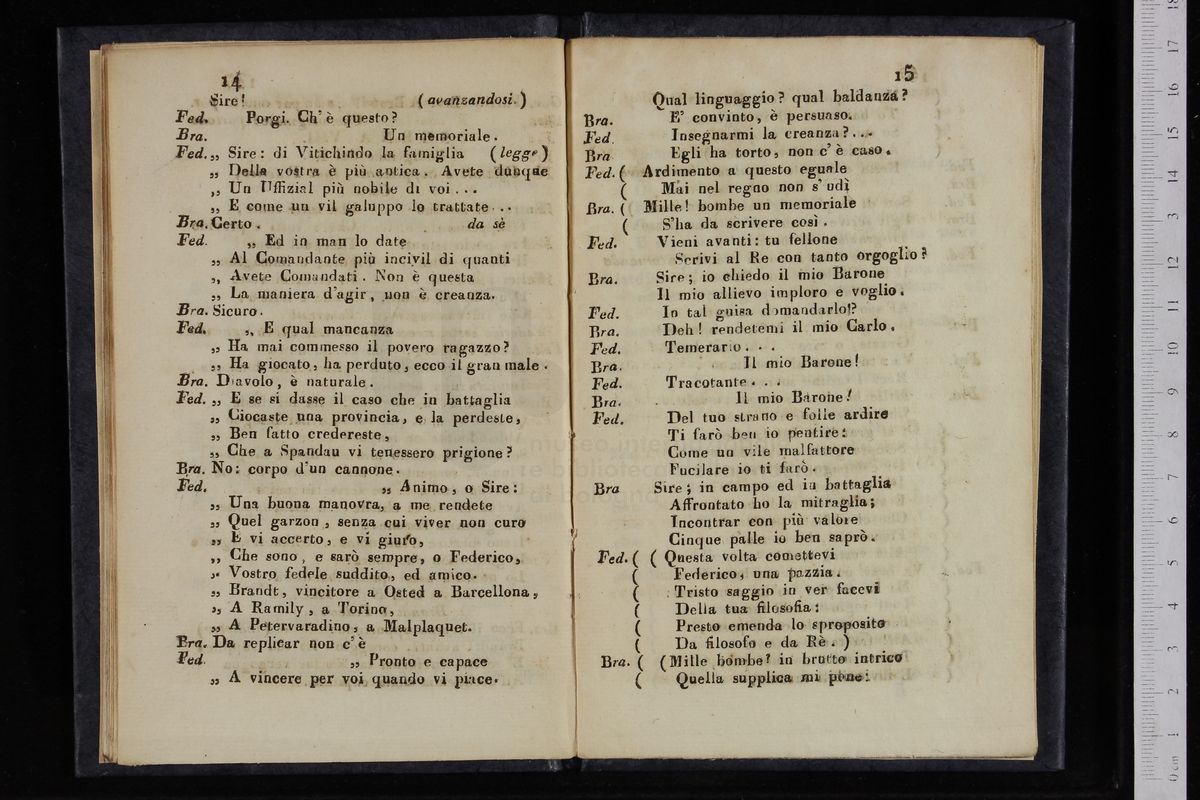 14
Sire! (avanzandosi.)
Fed. Porgi. Ch' è questo?
Bra. Un memoriale.
Fed. „ Sire: di Vitichindo la famiglia (legge)
„ Della vostra è più antica. Avete dunque
„ Un Uffizial più nobile di voi...
„ E come un vil galuppo lo trattate...
Bra. Certo. da sè
Fed. „ Ed in man lo date
„ Al Comandante più incivil di quanti
„ Avete Comandati. Non è questa
„ La maniera d'agir, non è creanza.
Bra. Sicuro.
Fed. „ E qual mancanza
„ Ha mai commesso il povero ragazzo?
„ Ha giocato, ha perduto, ecco il gran male.
Bra. Diavolo, è naturale.
Fed. „ E se si dasse il caso che in battaglia
„ Giocaste una provincia, e la perdeste,
„ Ben fatto credereste,
„ Che a Spandau vi tenessero prigione?
Bra. No: corpo d'un cannone.
Fed. „ Animo, o Sire:
„ Una buona manovra, a me rendete
„ Quel garzon, senza cui viver non curo
„ E vi accerto, e vi giuro,
„ Che sono, e sarò sempre, o Federico,
„ Vostro fedele suddito, ed amico.
„ Brandt, vincitore a Osted a Barcellona,
„ A Ramily, a Torino,
„ A Petervaradino, a Malplaquet.
Bra. Da replicar non c'è
Fed. „ Pronto e capace
„ A vincere per voi quando vi piace.
15
Qual linguaggio? qual baldanza?
Bra. E' convinto, è persuaso.
Fed. Insegnarmi la creanza?...
Bra Egli ha torto, non c'è caso.
Fed. ( Ardimento a questo eguale
( Mai nel regno non s'udì
Bra. ( Mille! bombe un memoriale
( S'ha da scrivere così.
Fed. Vieni avanti: tu fellone
Scrivi al Re con tanto orgoglio?
Bra. Sire; io chiedo il mio Barone
Il mio allievo imploro e voglio.
Fed. In tal guisa domandarlo!?
Bra. Deh! rendetemi il mio Carlo.
Fed. Temerario...
Bra. Il mio Barone!
Fed. Tracotante...
Bra. Il mio Barone!
Fed. Del tuo strano e folle ardire
Ti farò ben io pentire:
Come un vile malfattore
Fucilare io ti farò.
Bra Sire; in campo ed in battaglia
Affrontato ho la mitraglia;
Incontrar con più valore
Cinque palle io ben saprò.
Fed. ( ( Questa volta comettevi
( Federico, una pazzia.
( Tristo saggio in ver facevi
( Della tua filosofia:
( Presto emenda lo sproposito
( Da filosofo e da Rè. )
Bra. ( (Mille bombe! in brutto intrico
( Quella supplica mi pone:
0 cm 1 2 3 4 5 6 7 8 9 10 11 12 13 14 15 16 17 18